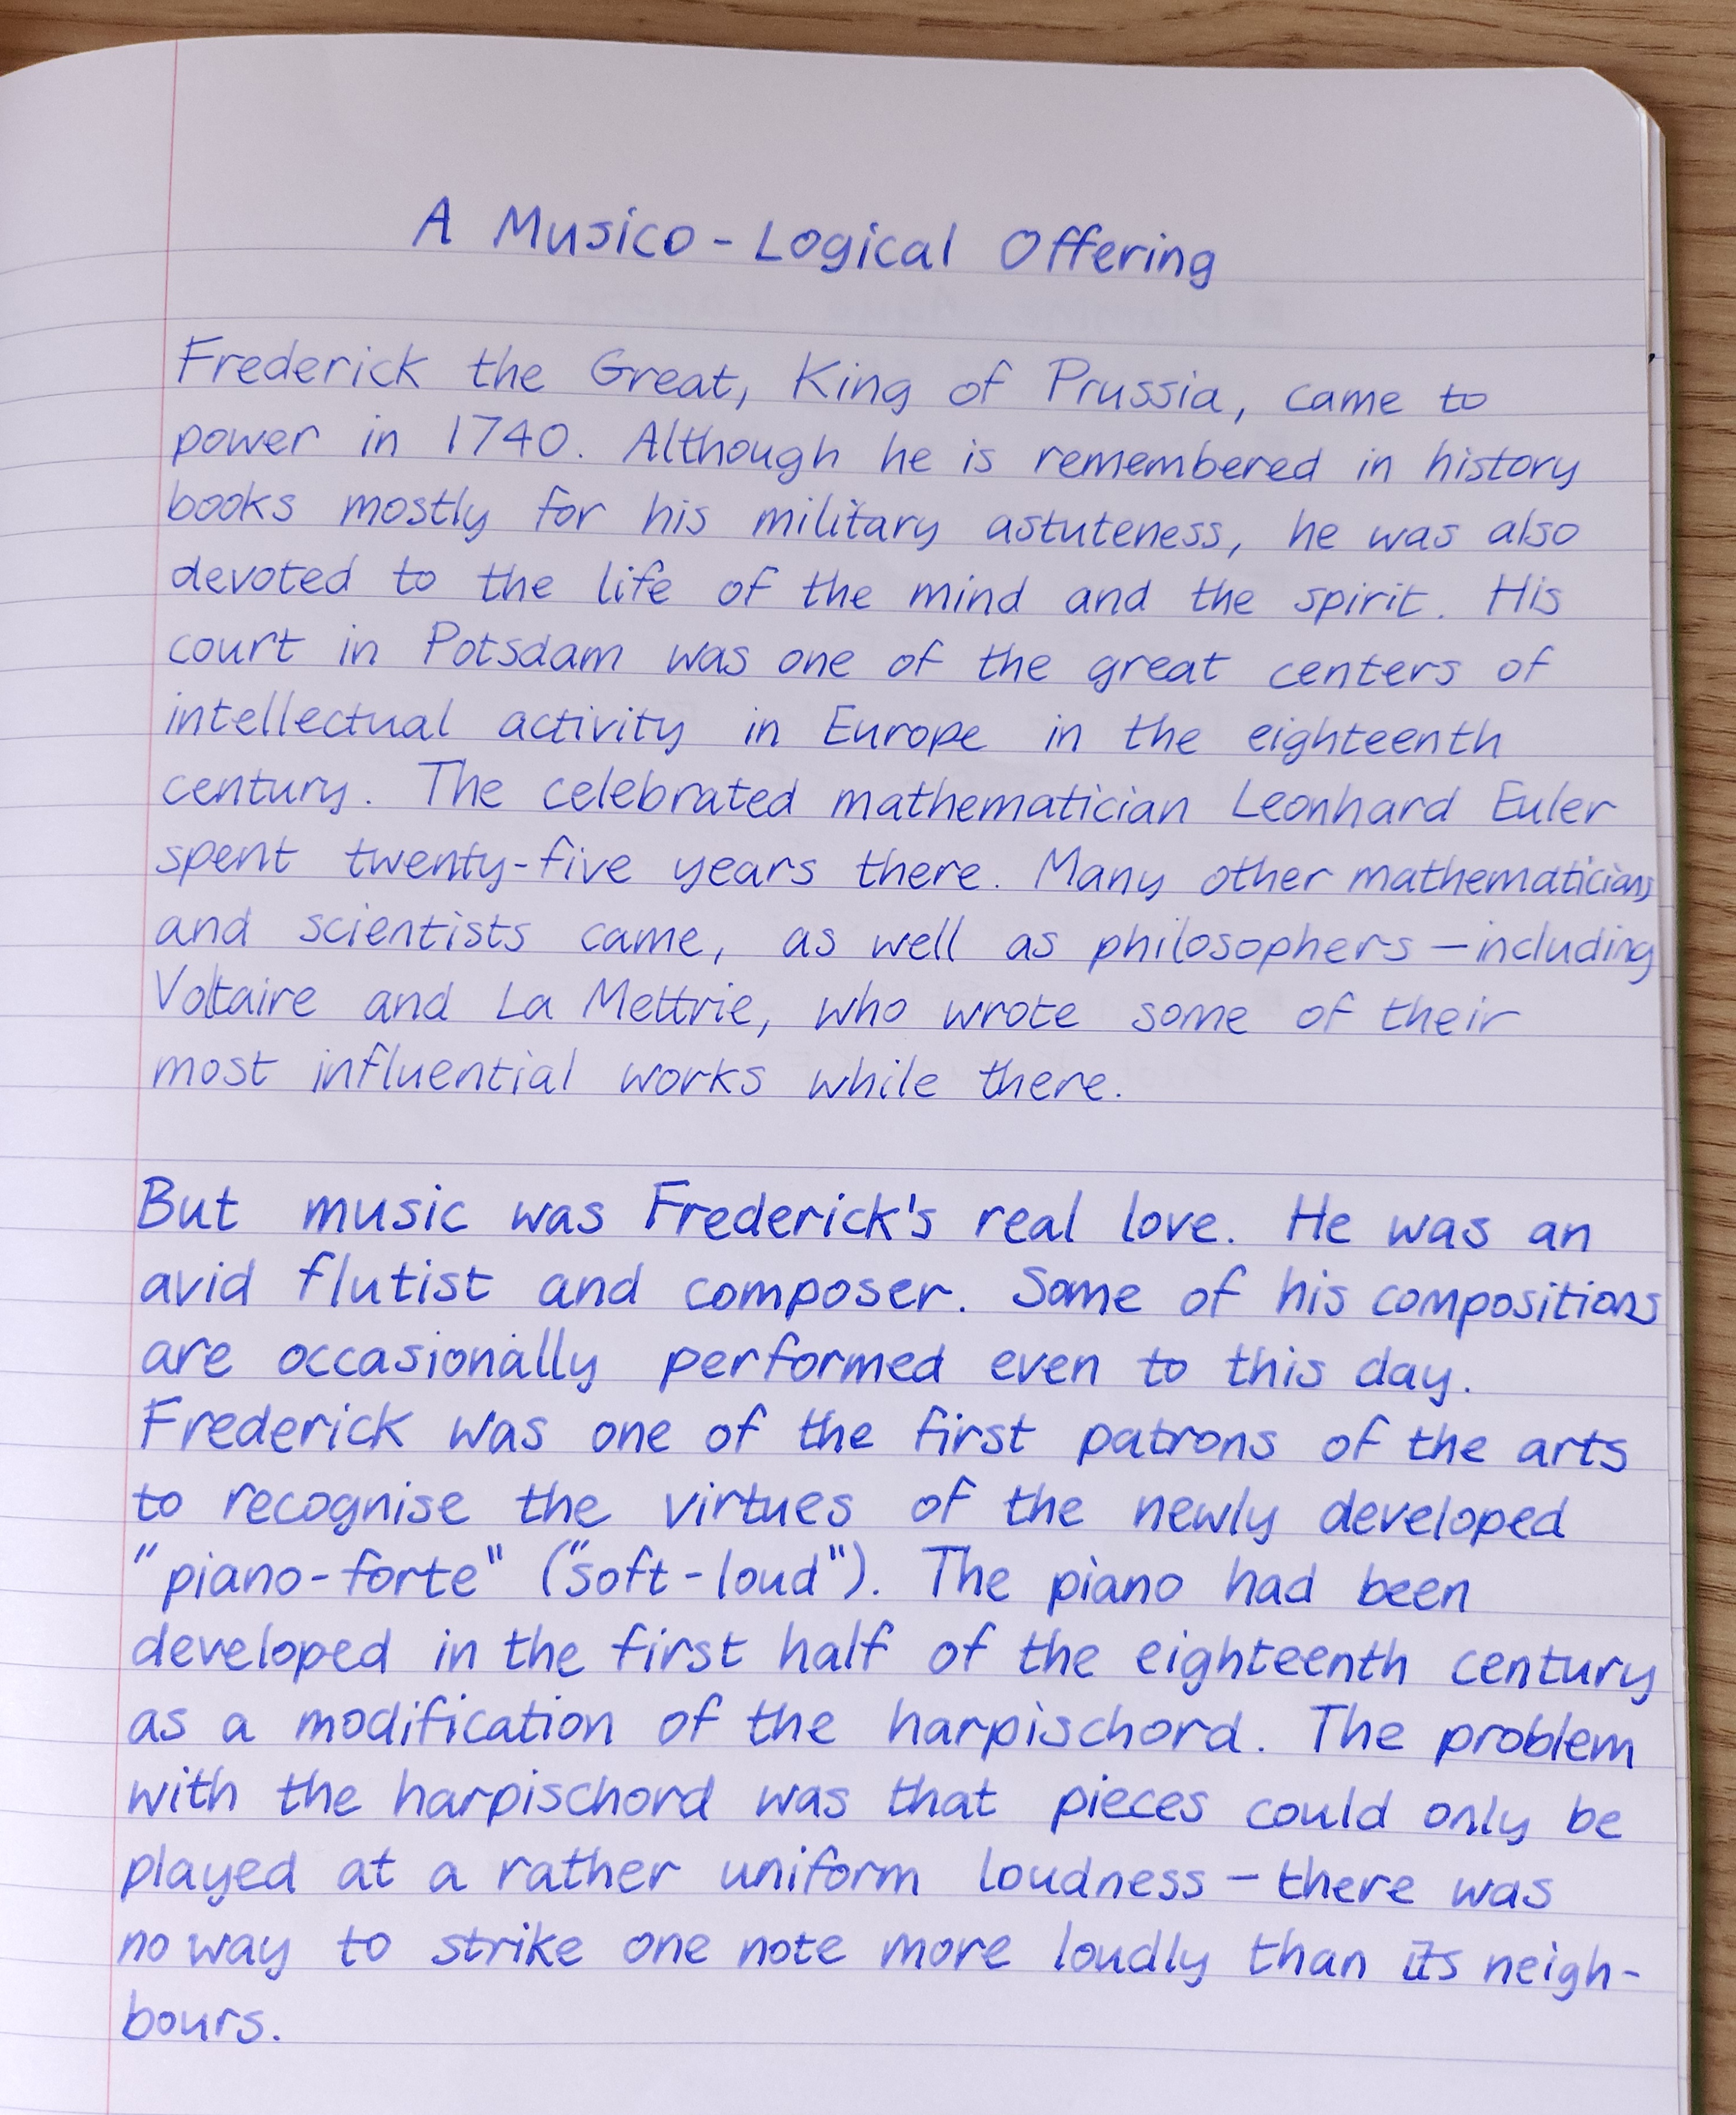 A Musico-Logical Offering
Frederick the Great, King of Prussia, came to
power in 1740. Although he is remembered in history
books mostly for his military astuteness, he was also
devoted to the life of the mind and the spirit. His
court in Potsdam was one of the great centers of
intellectual activity in Europe in the eighteenth
century. The celebrated mathematician Leonhard Euler
spent twenty-five years there. Many other mathematicians
and scientists came, as well as philosophers – including
Voltaire and La Mettrie, who wrote some of their
most influential works while there.
But music was Frederick's real love. He was an
avid flutist and composer. Some of his compositions
are occasionally performed even to this day.
Frederick was one of the first patrons of the arts
to recognise the virtues of the newly developed
"piano-forte" ("soft-loud"). The piano had been
developed in the first half of the eighteenth century
as a modification of the harpischord. The problem
with the harpischord was that pieces could only be
played at a rather uniform loudness – there was
no way to strike one note more loudly than its neigh-
bours.